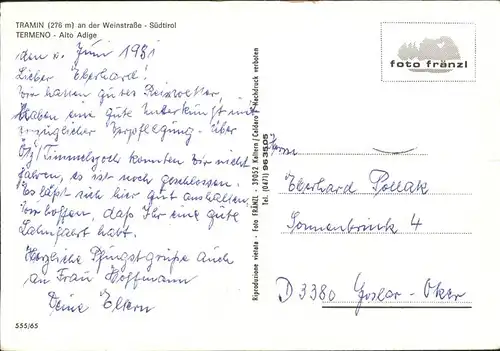 TRAMIN (276 m) an der Weinstraße - Südtirol
TERMENO - Alto Adige
den 1. Juni 1981
Lieber Eberhard!
Wir hatten gutes Reisewetter,
haben eine gute Unterkunft mit
vorzüglicher Verpflegung. Über
Ötz/Timmelsjoch konnten wir nicht
fahren, es ist noch geschlossen.
Es läßt sich hier gut aushalten.
Wir hoffen, daß Ihr eine gute
habt.
Herzliche Pfingstgrüße auch
an Frau Hoffmann
Deine Eltern
555/65
Riproduzione vietata - Foto FRÄNZL - 39052 Kaltern/Caldaro - Nachdruck verboten
Tel. (0471) 963505
foto fränzl
Herrn
Eberhard Pollak
Sonnenbrink 4
D 3380 Goslar-Oker